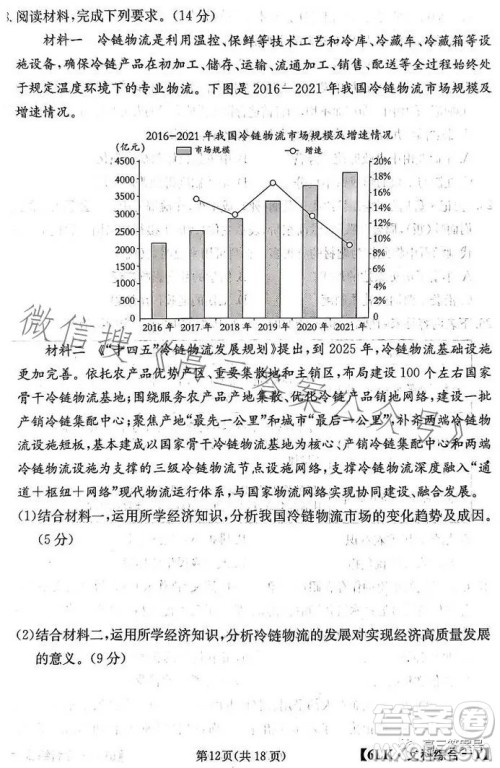 3.阅读材料,完成下列要求。(14分)
材料一 冷链物流是利用温控、保鲜等技术工艺和冷库、冷藏车、冷藏箱等设
施设备,确保冷链产品在初加工、储存、运输、流通加工、销售、配送等全过程始终处
于规定温度环境下的专业物流。下图是2016—2021年我国冷链物流市场规模及
增速情况。
2016-2021年我国冷链物流市场规模及增速情况
(亿元) 市场规模 增速
4500 20%
4000 18%
3500 16%
3000 14%
2500 12%
2000 10%
1500 8%
1000 6%
500 4%
0 2%
0%
2016年 2017年 2018年 2019年 2020年 2021年
材料二 《“十四五”冷链物流发展规划》提出,到2025年,冷链物流基础设施
更加完善。依托农产品优势产区、重要集散地和主销区,布局建设100个左右国家
骨干冷链物流基地;围绕服务农产品产地集散、优化冷链产品销地网络,建设一批
产销冷链集配中心;聚焦产地“最先一公里”和城市“最后一公里”,补齐两端冷链物
流设施短板,基本建成以国家骨干冷链物流基地为核心、产销冷链集配中心和两端
冷链物流设施为支撑的三级冷链物流节点设施网络,支撑冷链物流深度融入“通
道+枢纽+网络”现代物流运行体系,与国家物流网络实现协同建设、融合发展。
(1)结合材料一,运用所学经济知识,分析我国冷链物流市场的变化趋势及成因。
(5分)
(2)结合材料二,运用所学经济知识,分析冷链物流的发展对实现经济高质量发展
的意义。(9分)
第12页(共18页)
文科综合(一)】
微信搜《高三答案公众号》
答案圈